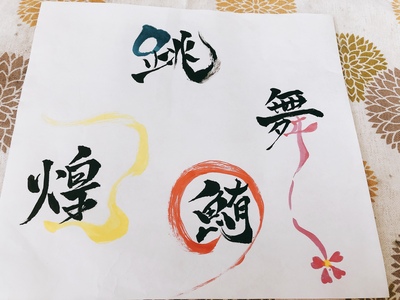 跳
舞
煌
鮪